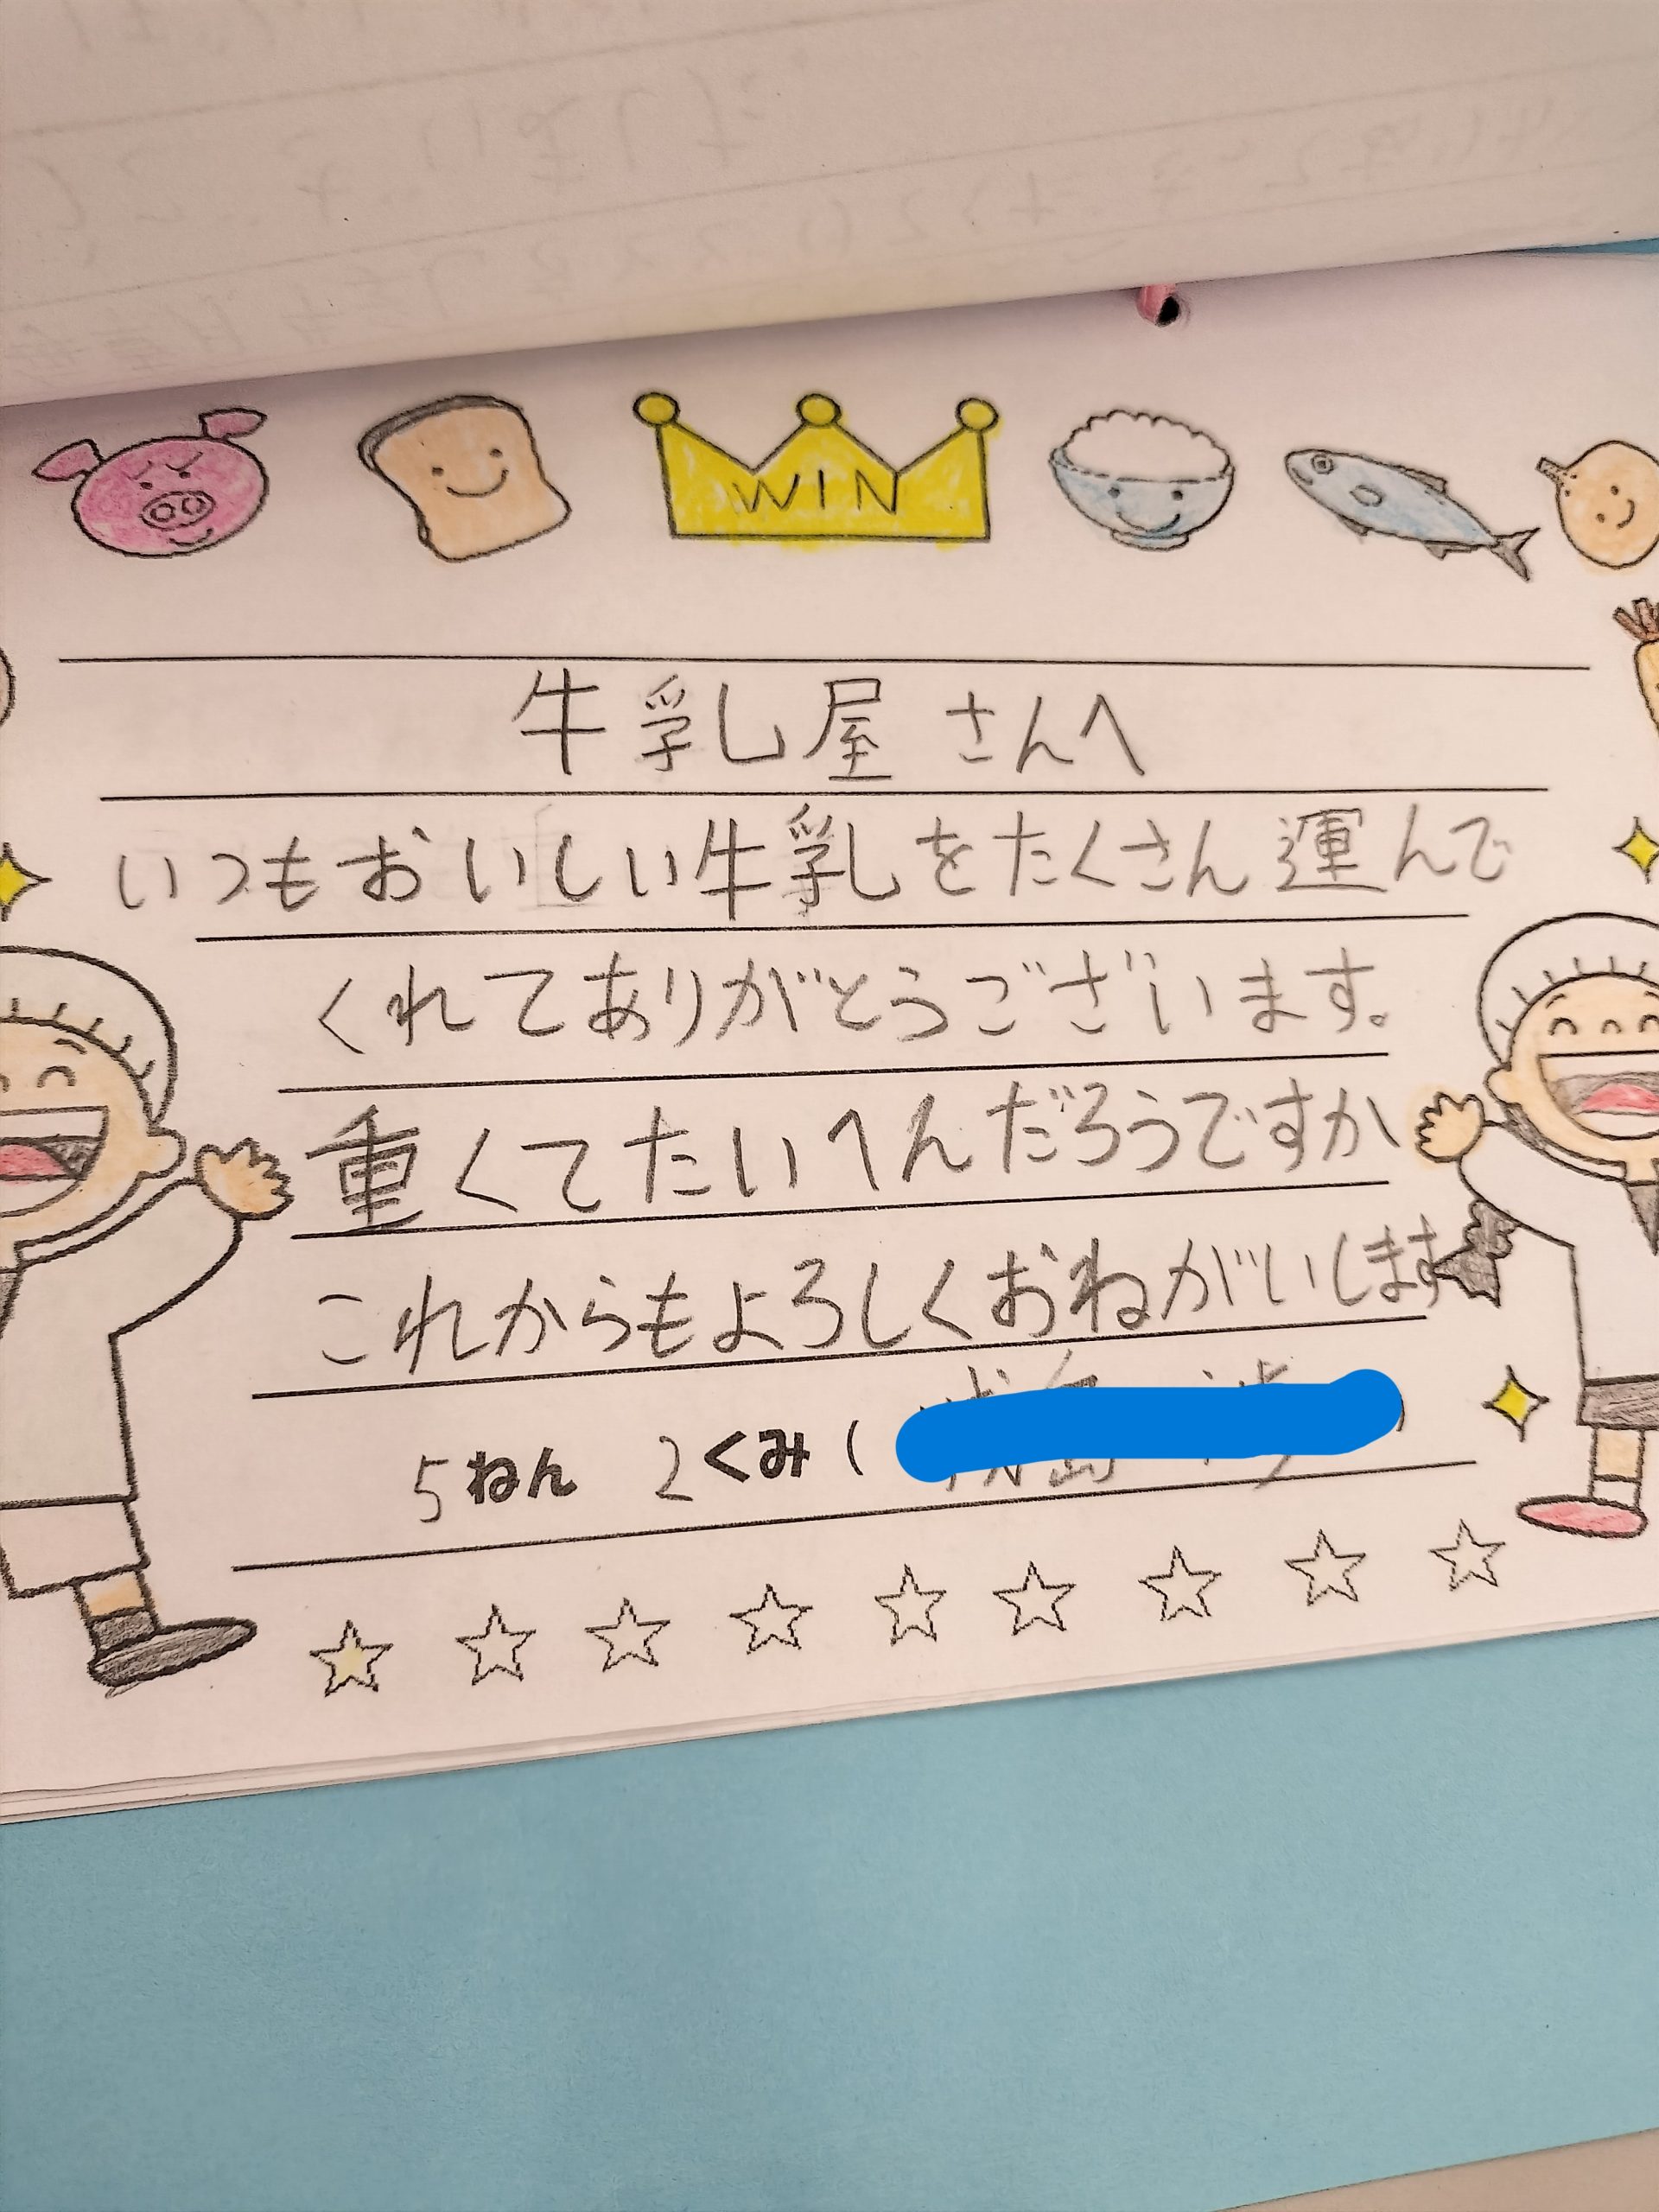 WIN
牛乳屋さんへ
いつもおいしい牛乳をたくさん運んで
くれてありがとうございます。
重くてたいへんだろうですか
これからもよろしくおねがいします
5ねん 2くみ(